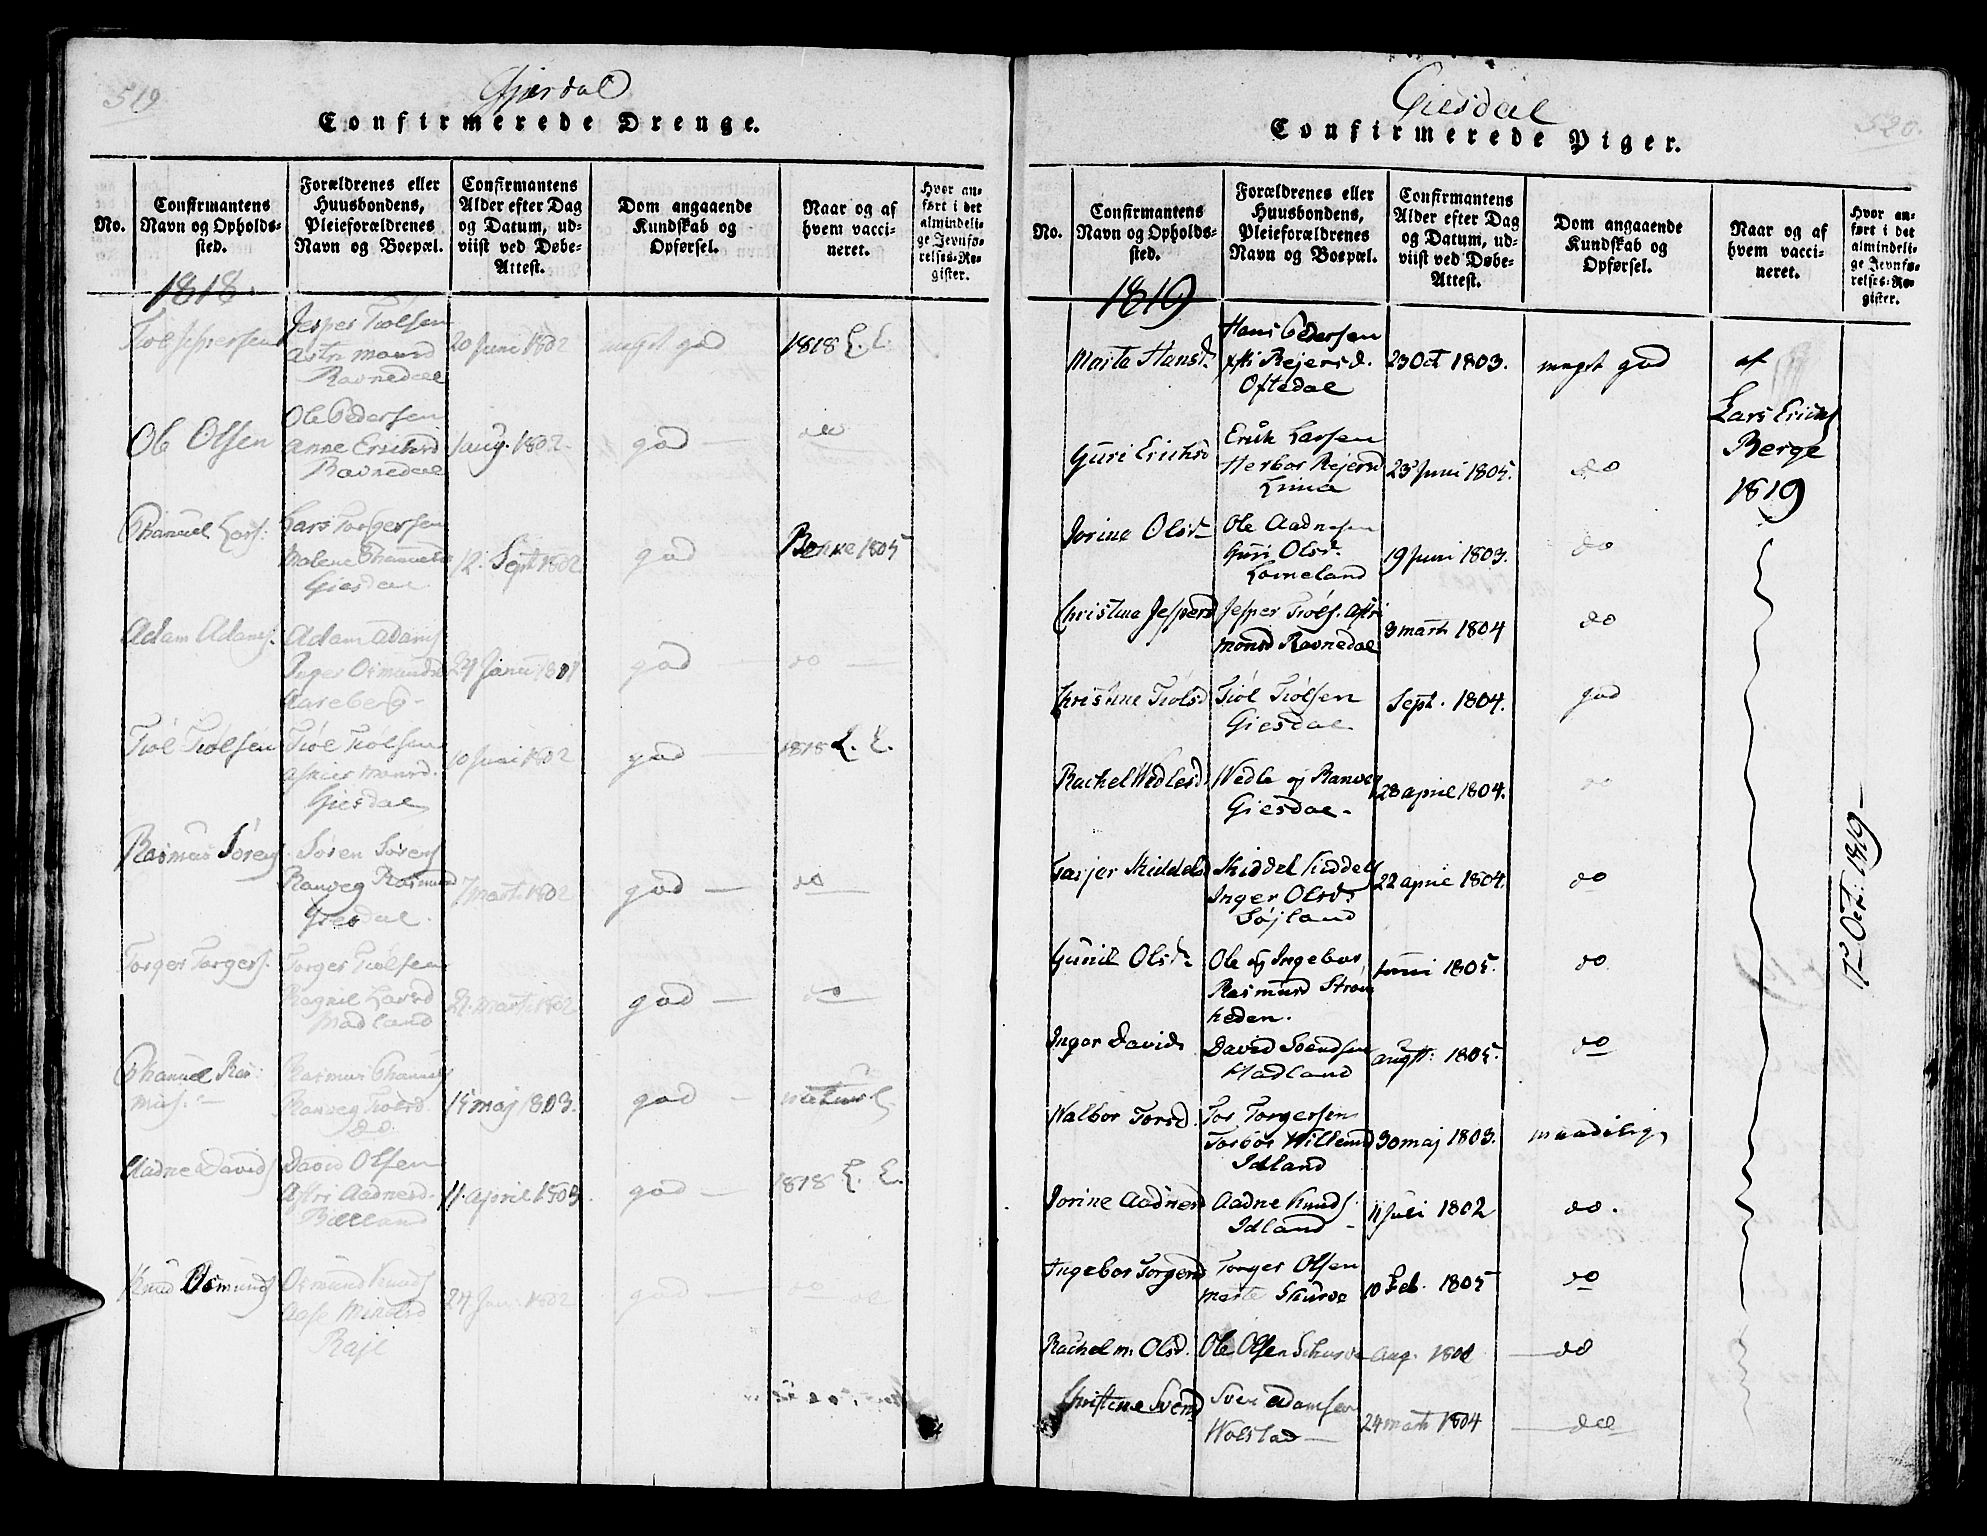 519
Gjesdal
Confirmerede Drenge.
No.
Confirmantens
Navn og Opholds-
sted.
Forældrenes eller
Huusbondens,
Pleieforældrenes
Navn og Boepæl.
Confirmantens
Alder efter Dag
og Datum, ud-
viist ved Døbe-
Attest.
Dom angaaende
Kundskab og
Opførsel.
Naar og af
hvem vacci-
neret.
Hvor an-
ført i det
almindeli-
ge Jevnfø-
relses-Re-
gister.
1818.
Jesper Tiølsen
Astri Monsd
Ravnedal
20 Juni 1802
meget god
1818 L. E.
Ole Olsen
Ole Pedersen
Anne Ericksd
Ravnedal
1 aug. 1802.
god
do
Omanuel Lars:
Lars Torgersen
Malene
Giesdal
12. Sept 1802
god
1805
Adam Adams.
Adam Adams
Inger Osmundsd
Aareberg
24 Janu 1801
god
do
Tiøl Tiølsen
Tiøl Tiølsen
Monsd.
Giesdal
10 Juni 1802
god
1818 L. E.
Rasmus Sørens
Søren Sørens
Ranveg Rasmusd
Giesdal.
7 Mart. 1802
god
do
Torger Torgers.
Torger Tiølsen
Ragnil Larsd
Madland
21. mart. 1802
god
do
Omanuel Ras:
mus.
Rasmus
Ranveg
do.
15 maj 1803.
god
Aadne Davids
David Olsen
Astri Aadnesd.
Bælland
11. april 1803.
god
1818 L. E.
Knud Osmunds
Osmund Knuds
Aase
Raje
24 Jan. 1802
god
do
520.
Giesdal
Confirmerede Piger.
No.
Confirmantens
Navn og Opholds-
sted.
Forældrenes eller
Huusbondens,
Pleieforældrenes
Navn og Boepæl.
Confirmantens
Alder efter Dag
og Datum, ud-
viist ved Døbe-
Attest.
Dom angaaende
Kundskab og
Opførsel.
Naar og af
hvem vacci-
neret.
Hvor an-
ført i det
almindeli-
ge Jevnfø-
relses-Re-
gister.
1819
Marta Hansd.
Hans Pedersen
Rejersd.
Oftedal
23 Oct 1803.
meget god
af
Lars Ericks
Berge
1819
Guri Ericksd
Erick Larsen
Herbor Rejersd
Lima
23 Juni 1805.
do
Jorine Olsd
Ole Aadnesen
Guri Olsd.
Lomeland
19 Juni 1803.
do
Christina Jespersd
Jesper Tiøls. Astri
Monsd Ravnedal
3 mart 1804
do
Christine Tiølsd
Tiøl Tiølsen
Giesdal
Sept. 1804.
god
Rachel Wedlesd
Wedle og Ranveg
Giesdal
28 april 1804.
do
Tarjer Kiddelsd
Kiddel Kiddels
Inger Olsd.
Søjland
22 april 1804.
do
Gunil Olsd.
Ole og Ingebor
Rasmusd Strøm
heden.
Juni 1805.
do
Inger Davids
David Svendsen
Madland
augst: 1805.
do
Walbor Torsd.
Tor Torgersen
Torbor Willumsd
Idland
30 maj 1803.
maadelig
Jorine Aadnesd
Aadne Knuds
Idland
11 Juli 1802
do.
Ingebor Torgersd
Torger Olsen
Marte Skurve
10 Feb. 1805
do
Rachel m. Olsd.
Ole Olsen Skurve
Aug. 1802
do
Christine Svends
Sven Adamsen
Wolstad
24 mart 1804
do
Oct: 1819